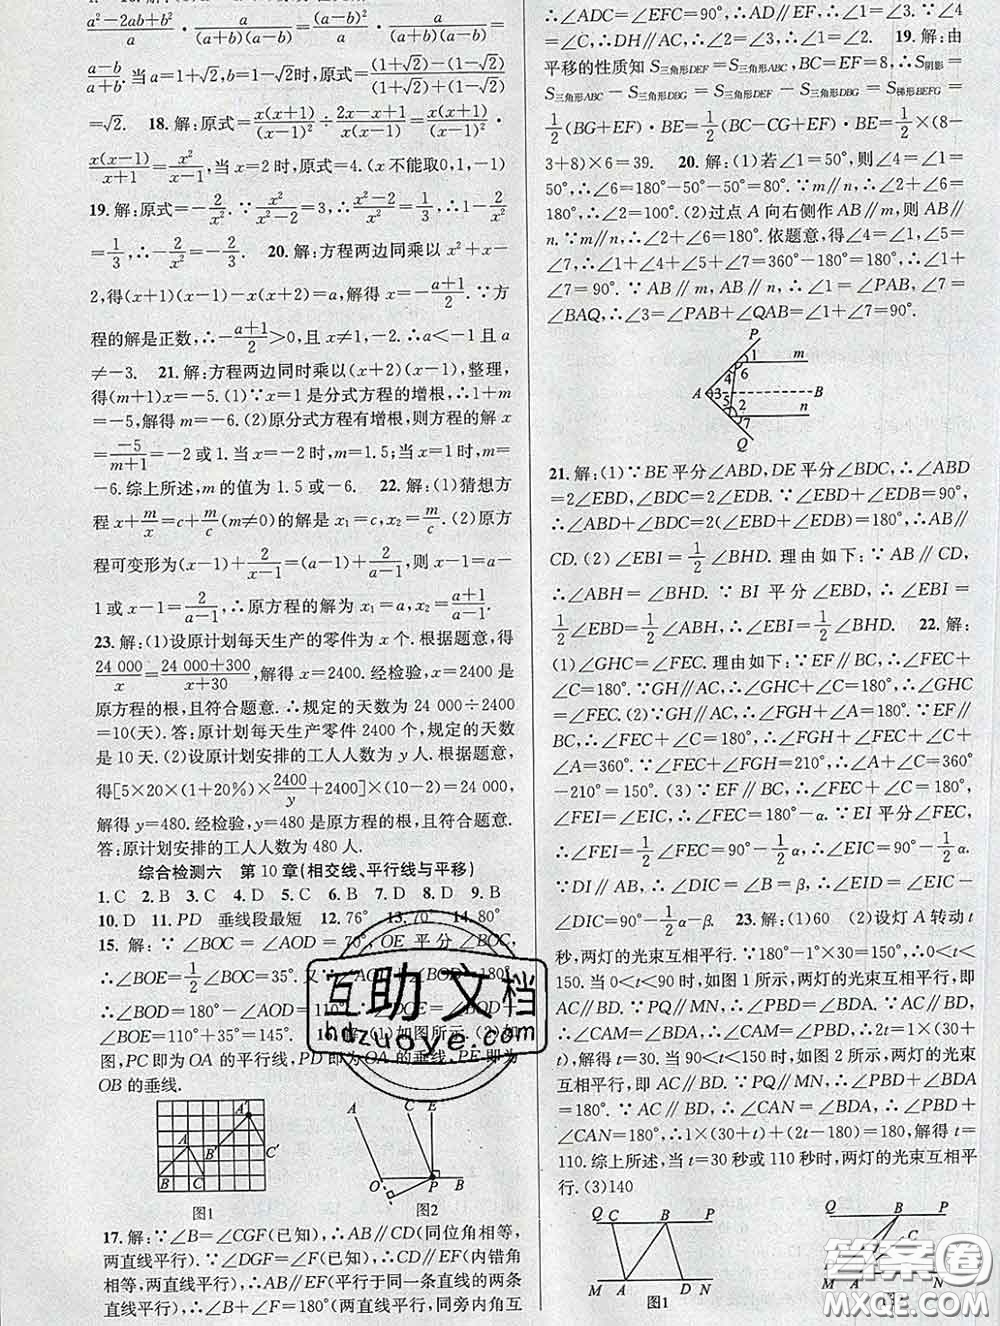 a²－2ab＋b²/a·a/(a＋b)(a－b)＝(a－b)²/a·a/(a＋b)(a－b)＝
a－b/a＋b.当a＝1＋√2,b＝1－√2时,原式＝(1＋√2)－(1－√2)/(1＋√2)＋(1－√2)
＝√2. 18.解:原式＝x(x＋1)/(x－1)²÷2x－x＋1/x(x－1)＝x(x＋1)/(x－1)²·
x(x－1)/x＋1＝x²/x－1,当x＝2时,原式＝4.(x不能取0,1,－1)
19.解:原式＝－2/x².∵x²/x²－2＝3,∴x²－2/x²＝1/3,∴1－2/x²
＝1/3,∴－2/x²＝－2/3. 20.解:方程两边同乘以x²＋x－
2,得(x＋1)(x－1)－x(x＋2)＝a,解得x＝－a＋1/2.∵方
程的解是正数,∴－a＋1/2>0,且x≠1,－2.∴a<－1且a
≠－3. 21.解:方程两边同时乘以(x＋2)(x－1),整理,
得(m＋1)x＝－5.(1)∵x＝1是分式方程的增根,∴1＋m
＝－5,解得m＝－6.(2)原分式方程有增根,则方程的解x
＝－5/m＋1＝－2或1.当x＝－2时,m＝1.5;当x＝1时,m＝
－6.综上所述,m的值为1.5或－6. 22.解:(1)猜想方
程x＋m/x＝c＋m/c(m≠0)的解是x₁＝c,x₂＝m/c.(2)原方
程可变形为(x－1)＋2/x－1＝(a－1)＋2/a－1,则x－1＝a－
1或x－1＝2/a－1,∴原方程的解为x₁＝a,x₂＝a＋1/a－1.
23.解:(1)设原计划每天生产的零件为x个.根据题意,得
24 000/x＝24 000＋300/x＋30,解得x＝2400.经检验,x＝2400是
原方程的根,且符合题意.∴规定的天数为24 000÷2400
＝10(天).答:原计划每天生产零件2400个,规定的天数
是10天.(2)设原计划安排的工人人数为y人.根据题意,
得[5×20×(1＋20%)×2400/y＋2400]×(10－2)＝24000,
解得y＝480.经检验,y＝480是原方程的根,且符合题意.
答:原计划安排的工人人数为480人.
综合检测六 第10章(相交线、平行线与平移)
1.C 2.B 3.C 4.B 5.B 6.B 7.D 8.D 9.B
10.D 11.PD 垂线段最短 12.76° 13.70° 14.80°
15.解:∵∠BOC＝∠AOD＝70°,OE平分∠BOC,
∴∠BOE＝1/2∠BOC＝35°.又∵∠AOD＋∠BOD＝180°,
∴∠BOD＝180°－∠AOD＝110°,∴
∠BOE＝110°＋35°＝145°. 16.解:(1)如图所示.(2)如
图,PC即为OA的平行线,PD即为OA的垂线,PE即为
OB的垂线.
A A′ B C C′
图1
A C E O P B
图2
17.∵∠B＝∠CGF(已知),∴AB∥CD(同位角相等,
两直线平行).∵∠DGF＝∠F(已知),∴CD∥EF(内错角
相等,两直线平行).∴AB∥EF(平行于同一条直线的两条
直线平行).∴∠B＋∠F＝180°(两直线平行,同旁内角互
∴∠ADC＝∠EFC＝90°,∴AD∥EF,∴∠1＝∠3.∵∠4
＝∠C,∴DH∥AC,∴∠2＝∠3,∴∠1＝∠2. 19.解:由
平移的性质知S三角形DEF＝S三角形ABC,BC＝EF＝8,∴S阴影
＝S三角形ABC－S三角形DBG＝S三角形DEF－S三角形DBG＝S梯形BEFG＝
1/2(BG＋EF)·BE＝1/2(BC－CG＋EF)·BE＝1/2×(8－
3＋8)×6＝39. 20.解:(1)若∠1＝50°,则∠4＝∠1＝
50°,∴∠6＝180°－50°－50°＝80°.∵m∥n,∴∠2＋∠6＝
180°,∴∠2＝100°.(2)过点A向右侧作AB∥m,则AB∥
n.∵m∥n,∴∠2＋∠6＝180°.依题意,得∠4＝∠1,∠5＝
∠7,∴∠1＋∠4＋∠5＋∠7＝360°－180°＝180°,∴∠1＋∠7
＝90°.∵AB∥m,AB∥n,∴∠1＝∠PAB,∠7＝
∠BAQ,∴∠3＝∠PAB＋∠QAB＝∠1＋∠7＝90°.
P 1 m 4 6 A 3 B 5 2 n 7 Q
21.解:(1)∵BE平分∠ABD,DE平分∠BDC,∴∠ABD
＝2∠EBD,∠BDC＝2∠EDB.∵∠EBD＋∠EDB＝90°,
∴∠ABD＋∠BDC＝2(∠EBD＋∠EDB)＝180°,∴AB∥
CD.(2)∠EBI＝1/2∠BHD.理由如下:∵AB∥CD,
∴∠ABH＝∠BHD.∵BI平分∠EBD,∴∠EBI＝
1/2∠EBD＝1/2∠ABH,∴∠EBI＝1/2∠BHD. 22.解:
(1)∠GHC＝∠FEC.理由如下:∵EF∥BC,∴∠FEC＋
∠C＝180°.∵GH∥AC,∴∠GHC＋∠C＝180°,∴∠GHC
＝∠FEC.(2)∵GH∥AC,∴∠FGH＋∠A＝180°.∵EF∥
BC,∴∠FEC＋∠C＝180°,∴∠FGH＋∠FEC＋∠C＋
∠A＝360°.∵∠FEC＋∠FGH＝210°,∴∠A＋∠C＝360°
－210°＝150°.(3)∵EF∥BC,∴∠FEC＋∠C＝180°,
∠FEI＝∠EIC.∵∠C＝α,∴∠FEC＝180°－α.∵EI平分∠FEC,
∴∠FEI＝1/2∠FEC＝90°－1/2α,∴∠DEI＝∠EIC－
∠DIC＝90°－1/2α－β. 23.解:(1)60 (2)设灯A转动t
秒,两灯的光束互相平行.∵180°－1°×30＝150°,∴0<t
<150.当0<t<90时,如图1所示,两灯的光束互相平行,即
AC∥BD.∵PQ∥MN,∴∠PBD＝∠BDA.∵AC∥BD,
∴∠CAM＝∠BDA,∴∠CAM＝∠PBD,∴2t＝1×(30＋
t),解得t＝30.当90<t<150时,如图2所示,两灯的光束
互相平行,即AC∥BD.∵PQ∥MN,∴∠PBD＋∠BDA
＝180°.∵AC∥BD,∴∠CAN＝∠BDA,∴∠PBD＋
∠CAN＝180°,∴1×(30＋t)＋(2t－180)＝180,解得t＝
110.综上所述,当t＝30秒或110秒时,两灯的光束互相平
行.(3)140
Q C B P M A D N
图1
Q B P C M A N
互助文档
hdzuoye.com
答案圈
MXQE.COM